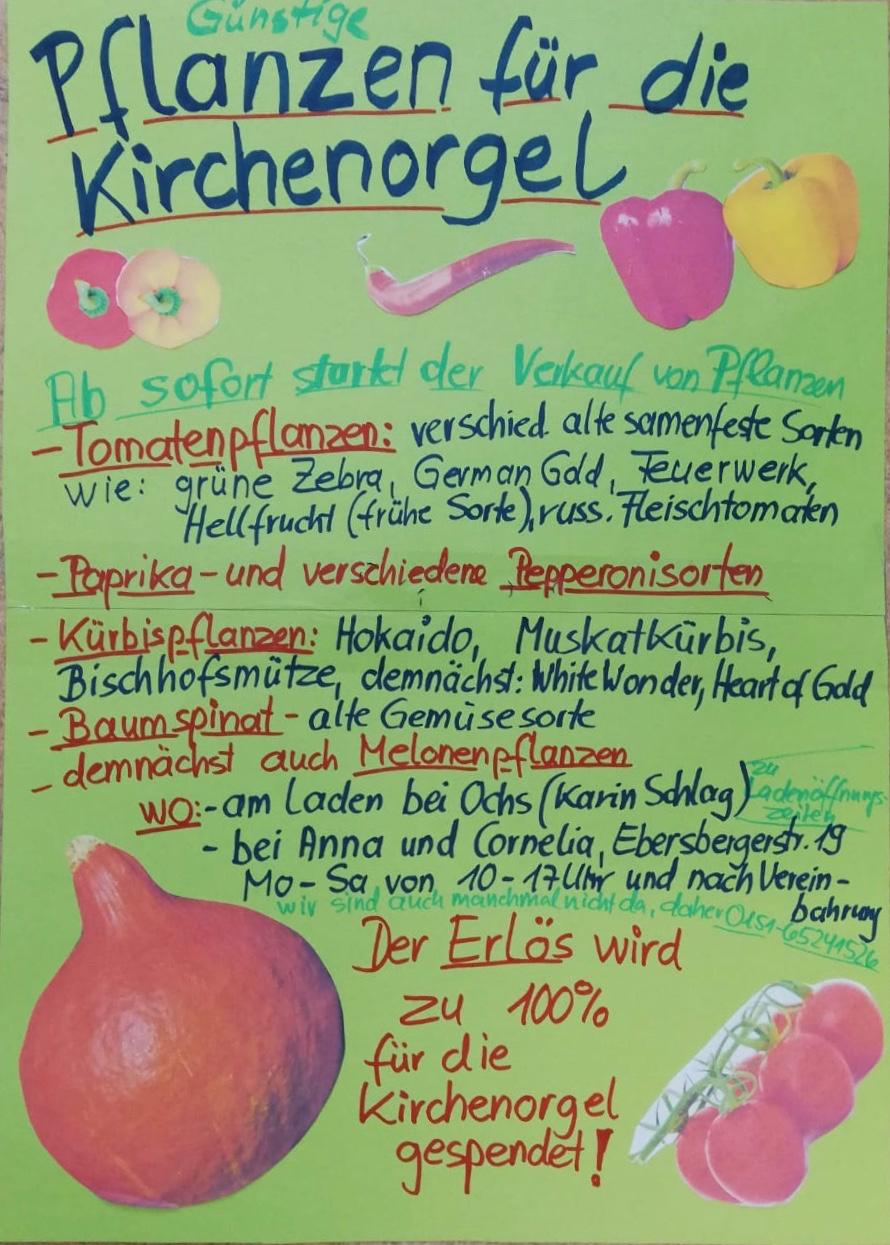 Günstige
Pflanzen für die
Kirchenorgel
Ab sofort startet der Verkauf von Pflanzen
- Tomatenpflanzen: verschied. alte samenfeste Sorten
wie: grüne Zebra, German Gold, Feuerwerk,
Hellfrucht (frühe Sorte), russ. Fleischtomaten
- Paprika - und verschiedene Pepperonisorten
- Kürbispflanzen: Hokaido, Muskatkürbis,
Bischhofsmütze, demnächst: White Wonder, Heart of Gold
- Baumspinat - alte Gemüsesorte
- demnächst auch Melonenpflanzen
wo: - am Laden bei Ochs (Karin Schlag) zu
Ladenöffnungs-
zeiten
- bei Anna und Cornelia, Ebersbergerstr. 19
Mo - Sa von 10 - 17 Uhr und nach Verein-
bahrung
wir sind auch manchmal nicht da, daher 0151-65241526
Der Erlös wird
zu 100%
für die
Kirchenorgel
gespendet!